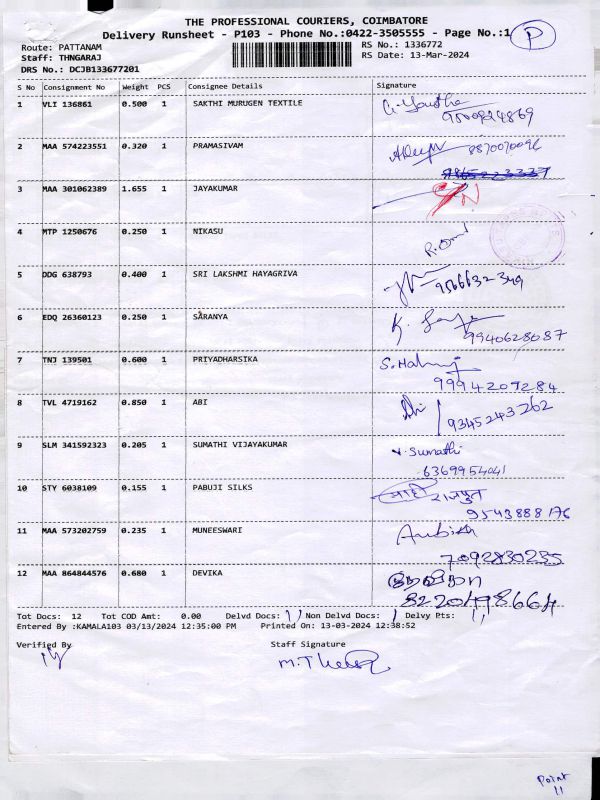 THE PROFESSIONAL COURIERS, COIMBATORE
Delivery Runsheet - P103 - Phone No.:0422-3505555 - Page No.:1 P
Route: PATTANAM
RS No.: 1336772
Staff: THNGARAJ
RS Date: 13-Mar-2024
DRS No.: DCJB133677201
S No Consignment No Weight PCS Consignee Details Signature
1 VLI 136861 0.500 1 SAKTHI MURUGEN TEXTILE
9500924869
2 MAA 574223551 0.320 1 PRAMASIVAM
3 MAA 301062389 1.655 1 JAYAKUMAR
4 MTP 1250676 0.250 1 NIKASU
5 DDG 638793 0.400 1 SRI LAKSHMI HAYAGRIVA
9566632349
6 EDQ 26360123 0.250 1 SARANYA
9940628087
7 TNJ 139501 0.600 1 PRIYADHARSIKA
9994209284
8 TVL 4719162 0.850 1 ABI
Abi 9345243262
9 SLM 341592323 0.205 1 SUMATHI VIJAYAKUMAR
V. Sumathi
6369954041
10 STY 6038109 0.155 1 PABUJI SILKS
राजपुत
9543888176
11 MAA 573202759 0.235 1 MUNEESWARI
7092830235
12 MAA 864844576 0.680 1 DEVIKA
8220498664
Tot Docs: 12 Tot COD Amt: 0.00 Delvd Docs: 11 Non Delvd Docs: 1 Delvy Pts: 11
Entered By :KAMALA103 03/13/2024 12:35:00 PM Printed On: 13-03-2024 12:38:52
Verified By
Staff Signature
Point
11